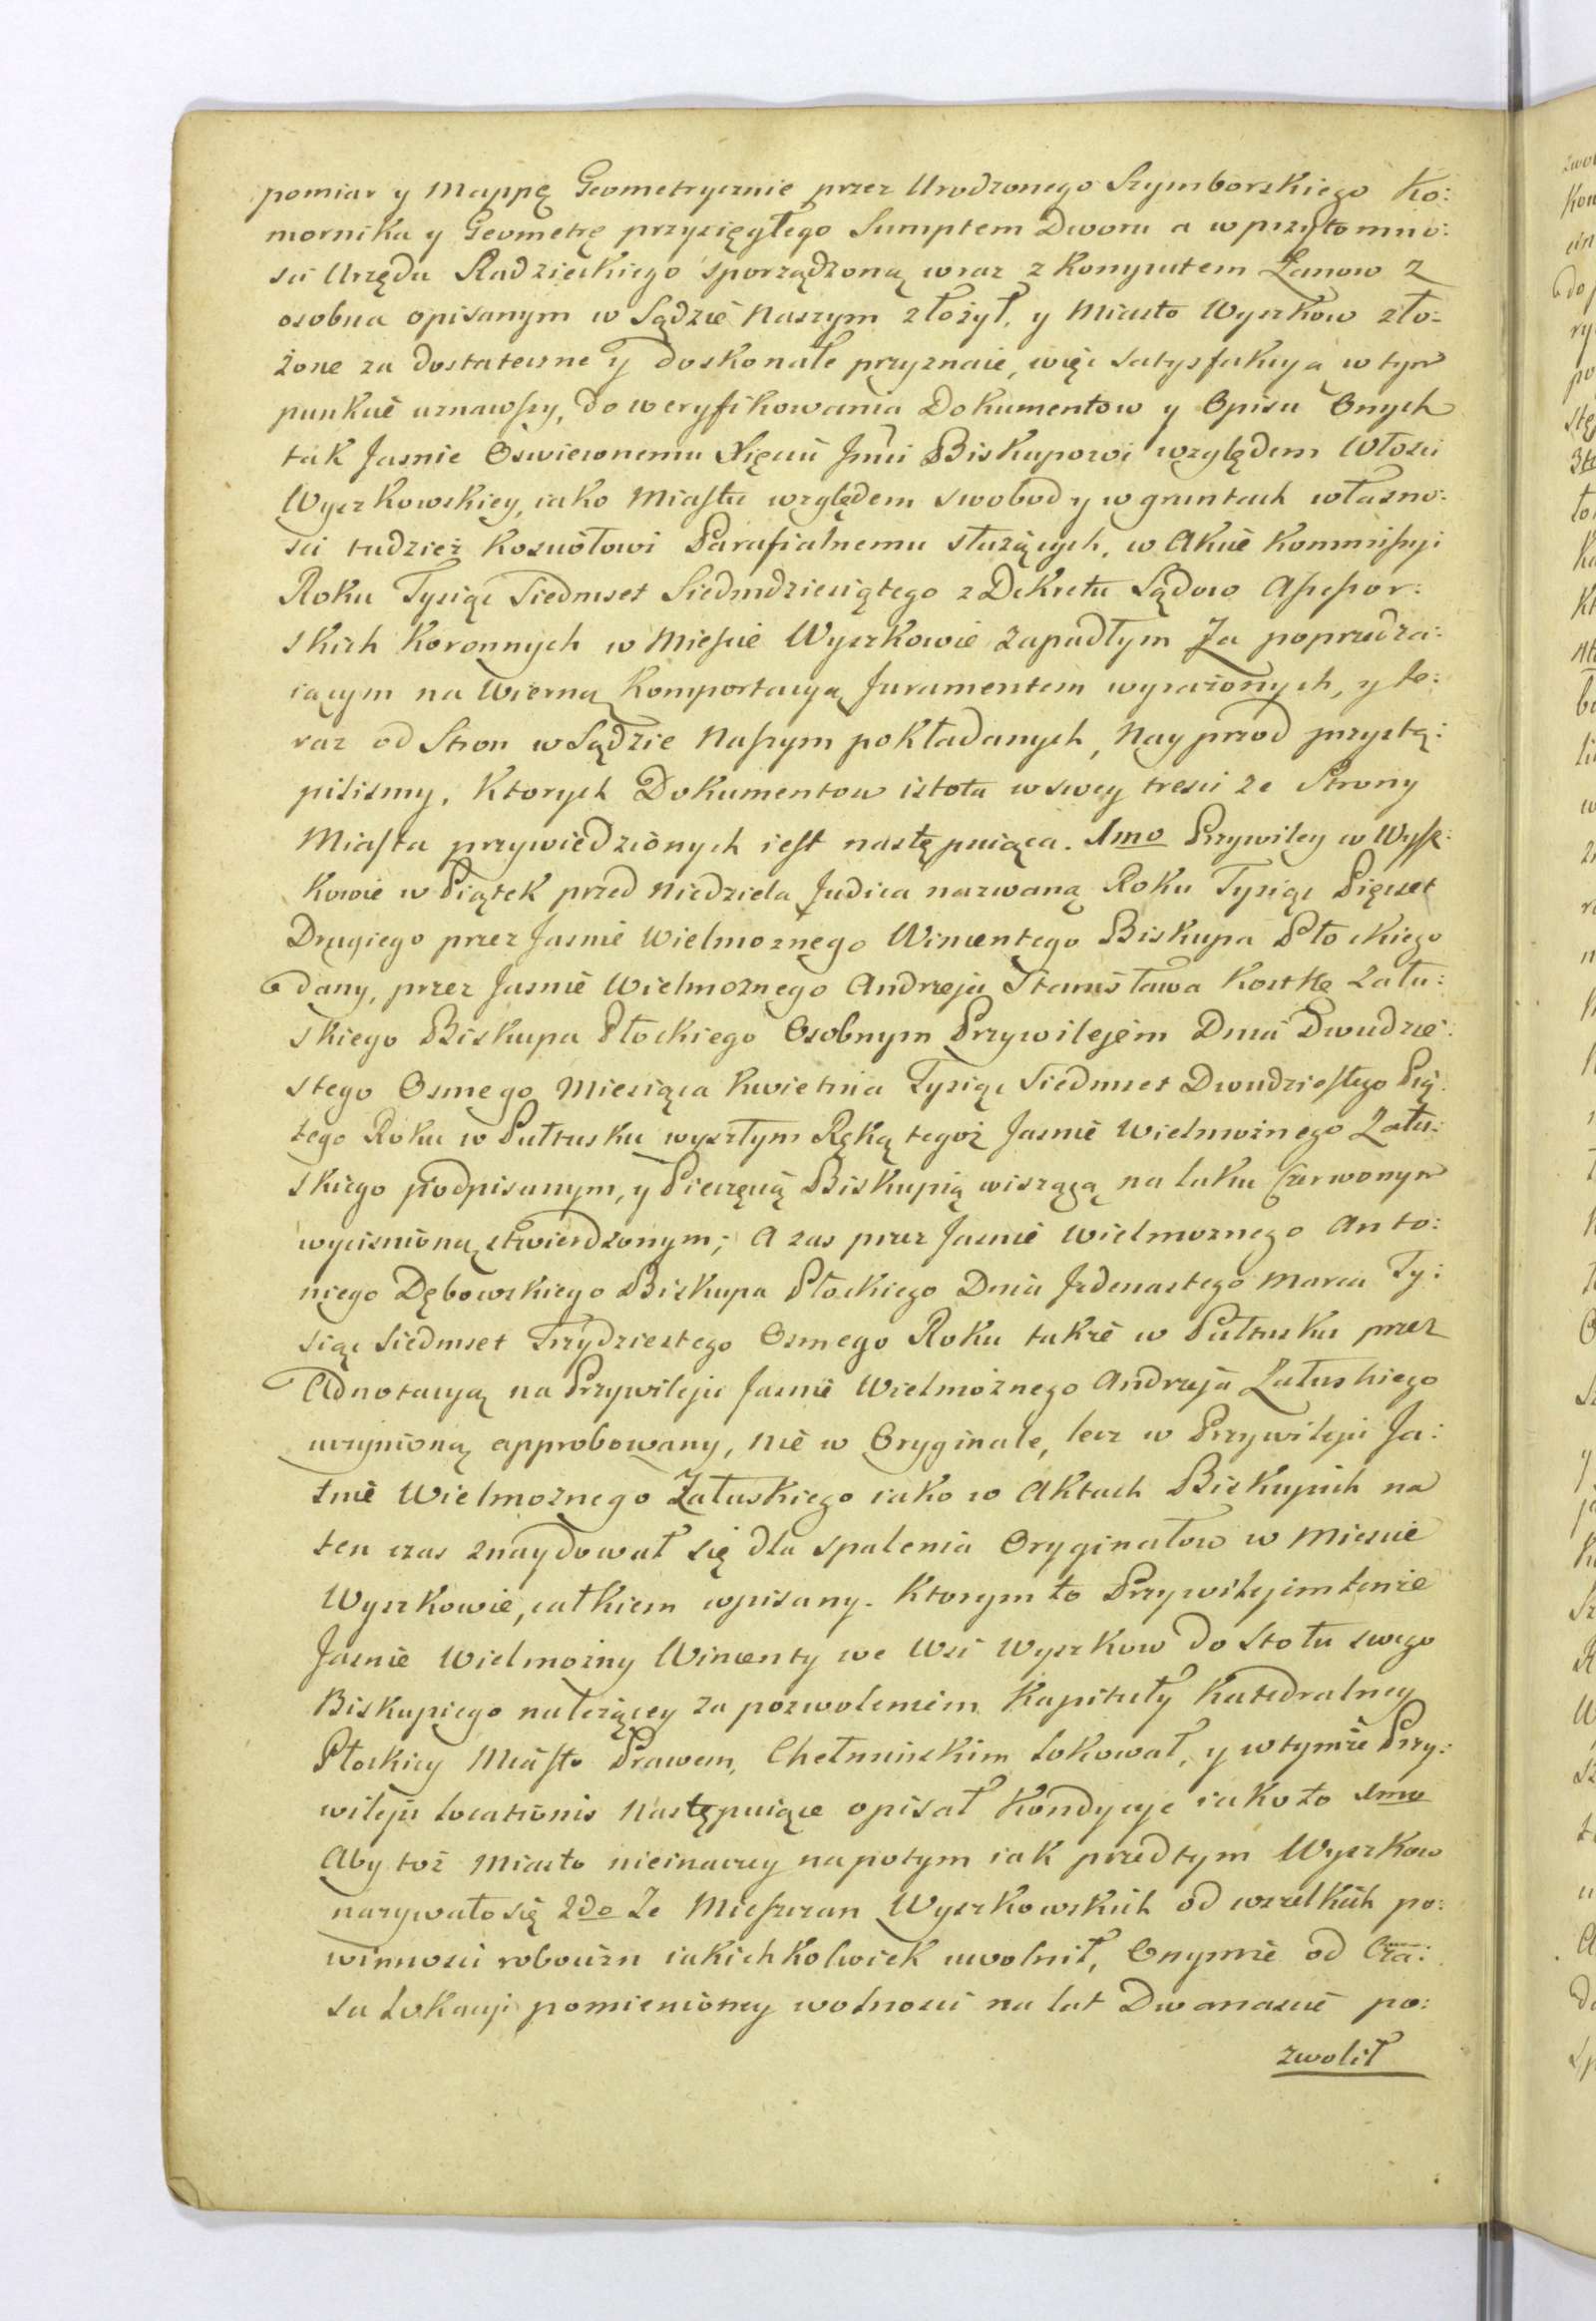 pomiar y Mappę Geometrycznie przez Urodzonego Szymborskiego Ko:
mornika y Geometrę przysięgłego Sumptem Dworu a w przytomno:
sci Urzędu Radzieckiego sporządzoną wraz z Komputem Łanow z
osobna opisanym w Sądzie Naszym złożył, y Miasto Wyszkow zło:
żone za dostateczne y doskonałe przyznaie, więc satysfakcyą w tym
punkcie uznawszy, do weryfikowania Dokumentow y Opisu Onych
tak Jasnie Oswieconemu Xięciu Jmci Biskupowi względem Włosci
Wyszkowskiey, iako Miastu względem swobod y w gruntach własno:
sci tudzież Kosciołowi Parafialnemu służących, w Akcie Kommissyi
Roku Tysiąc Siedmset Siedmdziesiątego z Dekretu Sądow Assessor:
skich Koronnych w Miescie Wyszkowie zapadłym Za poprzedza:
iącym na Wierną Komportacyą Juramentem wyrażonych, y te:
raz od Stron w Sądzie Naszym pokładanych, Nayprzod przystą:
pilismy, Ktorych Dokumentow istota w swey tresci ze Strony
Miasta przywiedzionych iest następuiąca. 1mo Przywiley w Wysz:
kowie w Piątek przed Niedziela Judica nazwaną Roku Tysiąc Pięcset
Drugiego przez Jasnie Wielmożnego Wincentego Biskupa Płockiego
dany, przez Jasnie Wielmożnego Andrzeja Stanisława Kostkę Zału:
skiego Biskupa Płockiego Osobnym Przywilejem Dnia Dwudzie:
stego Osmego Miesiąca Kwietnia Tysiąc Siedmset Dwudziestego Pią:
tego Roku w Pułtusku wyszłym Ręką tegoż Jasnie Wielmożnego Zału:
skiego podpisanym, y Pieczęcią Biskupią wiszącą na laku Czerwonym
wycisnioną stwierdzonym; A zas przez Jasnie Wielmożnego Anto:
niego Dębowskiego Biskupa Płockiego Dnia Jedenastego Marca Ty:
siąc Siedmset Trzydziestego Osmego Roku także w Pułtusku przez
Adnotacyą na Przywileju Jasnie Wielmożnego Andrzeja Załuskiego
uczynioną approbowany, nie w Oryginale, lecz w Przywileju Ja:
snie Wielmożnego Załuskiego iako w Aktach Biskupich na
ten czas znaydował się dla spalenia Oryginałow w Miescie
Wyszkowie, całkiem wpisany. Ktorym to Przywilejem tenże
Jasnie Wielmożny Wincenty we Wsi Wyszkow do Stołu swego
Biskupiego należącey za pozwoleniem Kapituły Katedralney
Płockiey Miasto Prawem Chełminskim lokował, y w tymże Przy:
wileju locationis Następuiące opisał Kondycye iako to 1mo
Aby toż Miasto nieinaczey napotym iak przedtym Wyszkow
nazywało się 2do Ze Mieszczan Wyszkowskich od wszelkich po:
winnosci roboczn iakichkolwiek uwolnił, Onymże od Cza:
su Lokacyi pomienioney wolnosci na lat Dwanascie po:
zwolił